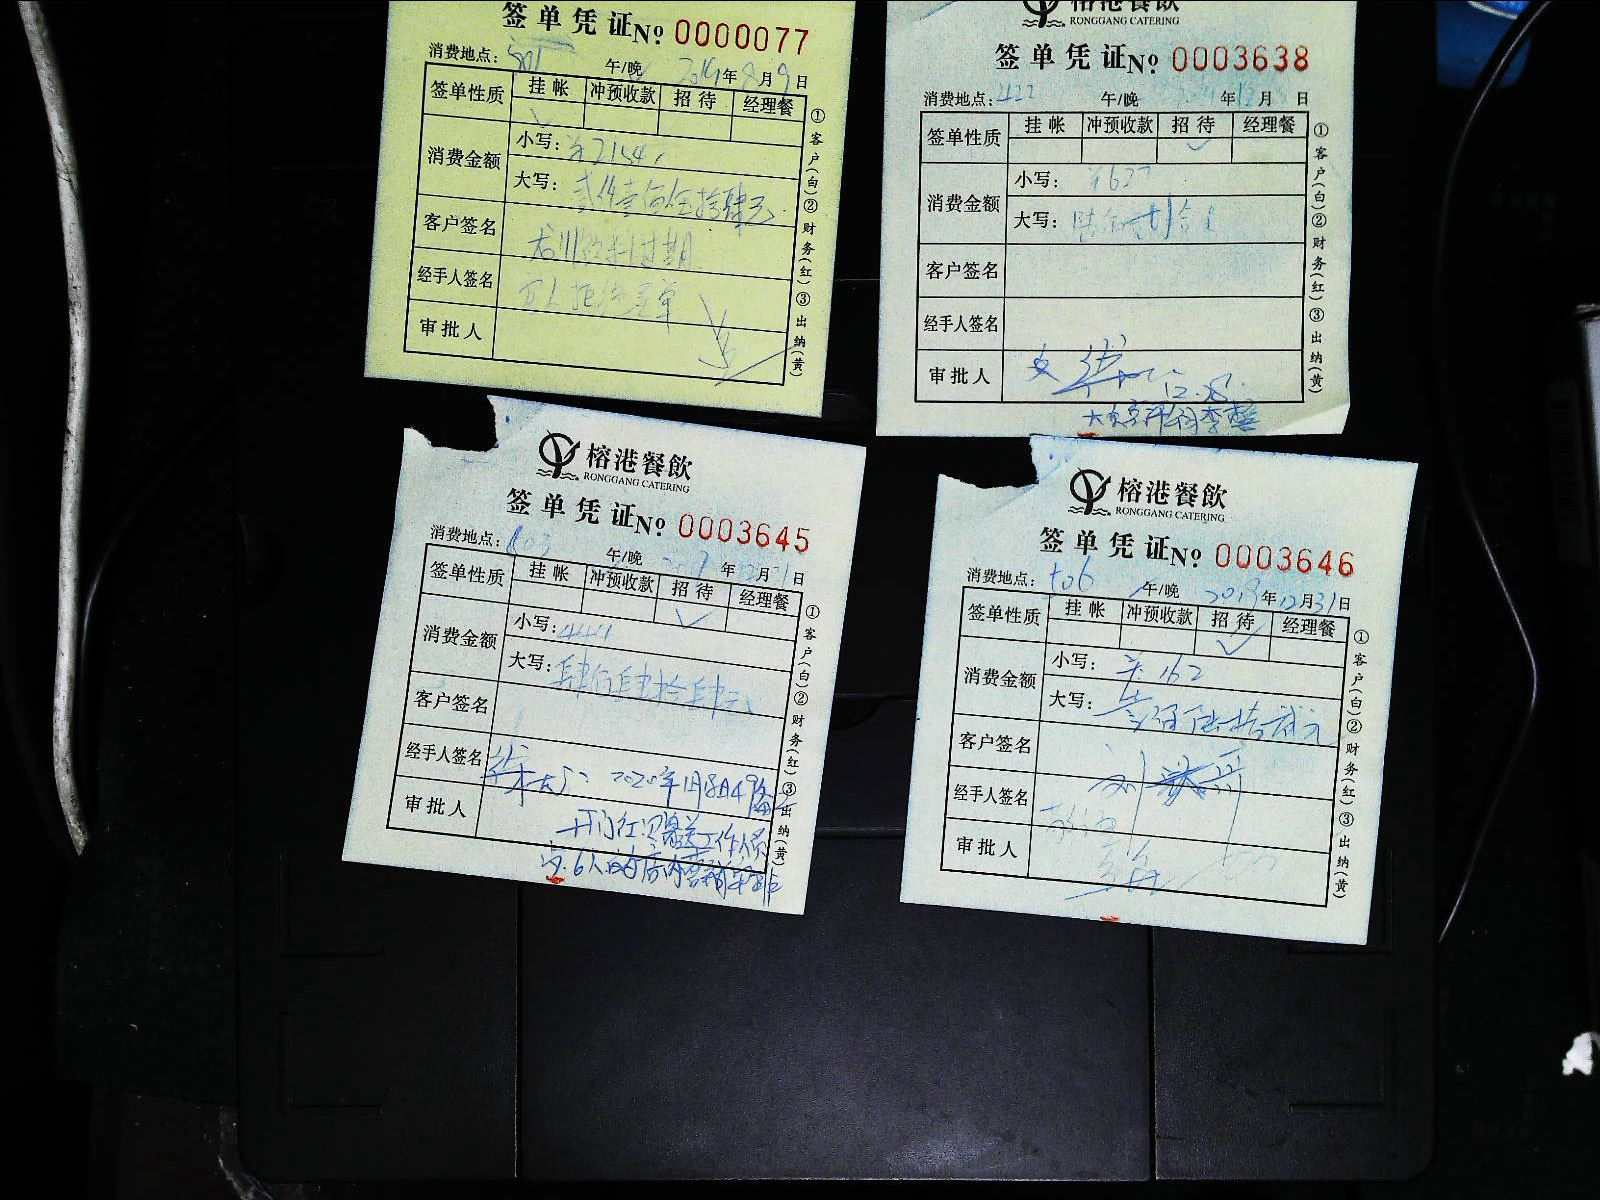 签单凭证 No 0000077
消费地点：501 午/晚 2019年8月9日
签单性质 挂帐 冲预收款 招待 经理餐
消费金额 小写：¥2154
大写：贰仟壹佰伍拾肆元
客户签名
经手人签名
审批人
①客户(白)②财务(红)③出纳(黄)
RONGGANG CATERING
签单凭证 No 0003638
消费地点：422 午/晚 年12月 日
签单性质 挂帐 冲预收款 招待 经理餐
消费金额 小写：¥627
大写：
客户签名
经手人签名
审批人 12.28
①客户(白)②财务(红)③出纳(黄)
榕港餐飲
RONGGANG CATERING
签单凭证 No 0003645
消费地点：803 午/晚 年 月 日
签单性质 挂帐 冲预收款 招待 经理餐
消费金额 小写：444
大写：肆佰肆拾肆元
客户签名
经手人签名 2020年1月8日
审批人 工作人员
①客户(白)②财务(红)③出纳(黄)
榕港餐飲
RONGGANG CATERING
签单凭证 No 0003646
消费地点：706 午/晚 2019年12月31日
签单性质 挂帐 冲预收款 招待 经理餐
消费金额 小写：¥162
大写：壹佰陆拾贰元
客户签名
经手人签名
审批人
①客户(白)②财务(红)③出纳(黄)